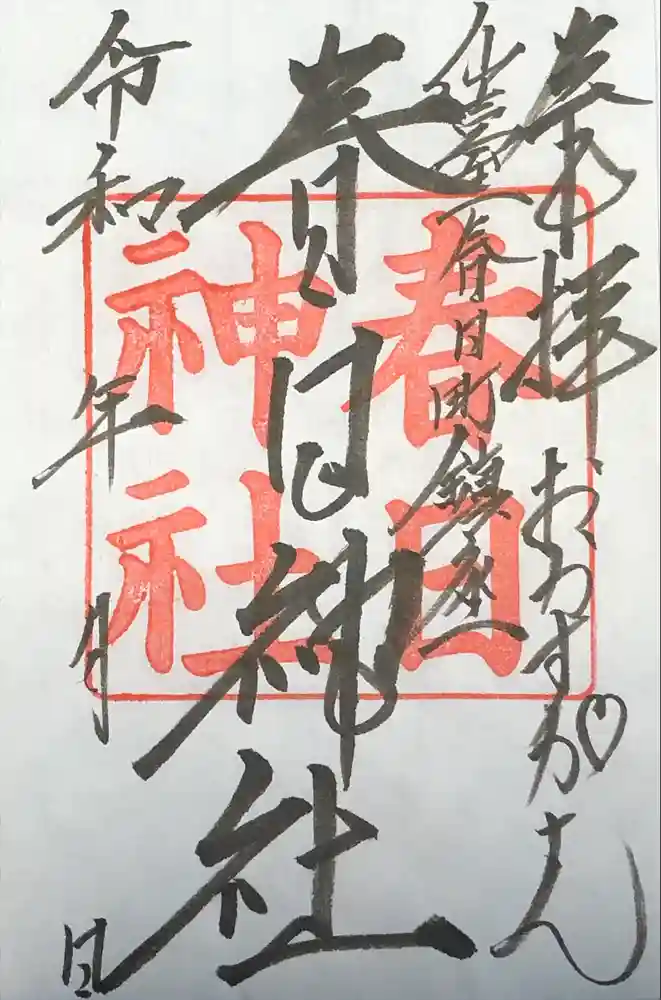 奉拝 おかすか♡さん
仙臺春日町鎮座
春日神社
令和 年 月 日
春日
神社